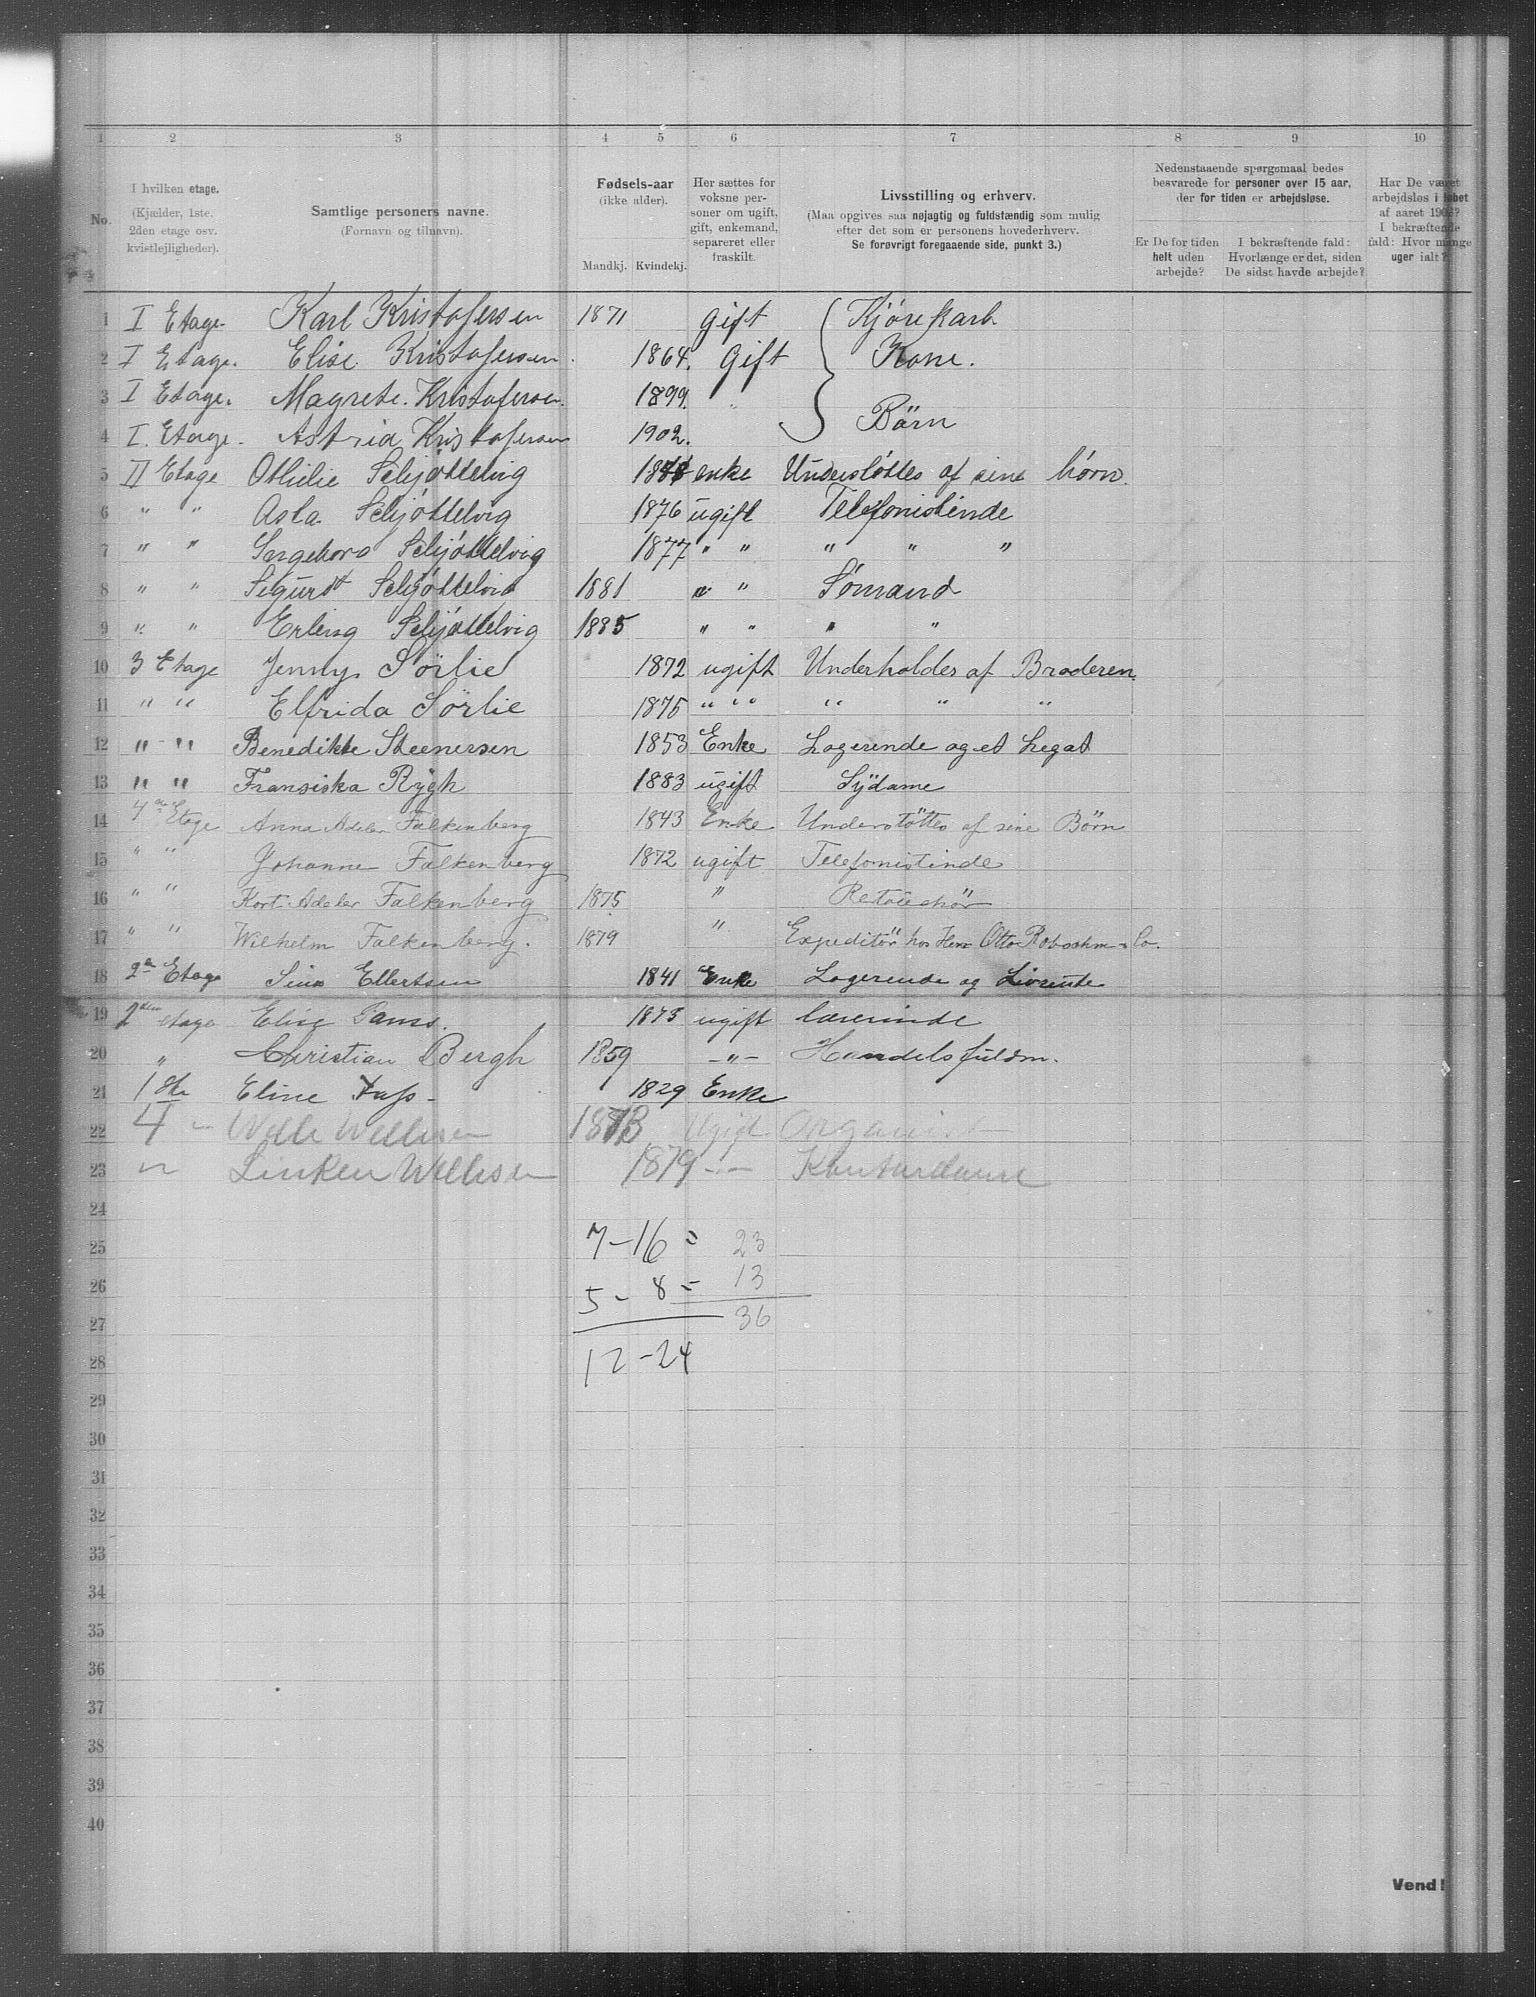 1 2 3 4 5 6 7 8 9 10
No.
I hvilken etage.
(Kjælder, 1ste.
2den etage osv.
kvistlejligheder).
Samtlige personers navne.
(Fornavn og tilnavn).
Fødsels-aar
(ikke alder).
Mandkj. Kvindekj.
Her sættes for
voksne per-
soner om ugift,
gift, enkemand,
separeret eller
fraskilt.
Livsstilling og erhverv.
(Maa opgives saa nøjagtig og fuldstændig som mulig
efter det som er personens hovederhverv.
Se forøvrigt foregaaende side, punkt 3.)
Nedenstaaende spørgsmaal bedes
besvarede for personer over 15 aar,
der for tiden er arbejdsløse.
Er De for tiden
helt uden
arbejde?
I bekræftende fald:
Hvorlænge er det, siden
De sidst havde arbejde?
Har De været
arbejdsløs i løbet
af aaret 190?
I bekræftende
fald: Hvor mange
uger ialt?
1 I Etage. Karl Kristofersen 1871 Gift Kjørekarl
2 I Etage. Elise Kristofersen. 1864. Gift Kone.
3 I Etage. Magrete. Kristofersen. 1899. "
4 I. Etage. Astrid Kristofersen 1902. Børn
5 II Etage Othilie Schjøttelvig enke Understøttes af sine børn.
6 " " Asta Schjøttelvig 1876 ugift Telefonistinde
7 " " Ingeborg Schjøttelvig 1877 " " " " "
8 " " Sigurd Schjøttelvig 1881 " " Sømand
9 " " Erling Schjøttelvig 1885 " " " "
10 3 Etage Jenny Sörlie 1872 ugift Underholdes af Broderen.
11 " " Elfrida Sörlie 1875 " " " " " "
12 " " Benedikte Steenersen 1853 Enke Logerende og et Legat
13 " " Fransiska Rygh 1883 ugift Sydame
14 4de Etage Anna Adeler Falkenberg 1843 Enke Understöttes af sine Börn
15 " " Johanne Falkenberg 1872 ugift Telefonistinde
16 " " Kort Adeler Falkenberg 1875 " Retouchör
17 " " Wilhelm Falkenberg. 1879 " Expeditör hos Herr Otto & Co.
18 2den Etage Sina Ellertsen 1841 Enke Logerende og Livrente
19 2den etage Elise 1873 ugift lærerinde
20 " Christian Bergh 1859 -"- Handelsfuldm.
21 1ste Eline 1829 Enke
22 4 " Willisen Ugift Organist
23 " Willisen 1879 - - Kontordame
24
25 7 - 16 = 23
26 5 - 8 = 13
27 36
28 12 - 24
29
30
31
32
33
34
35
36
37
38
39
40
Vend!